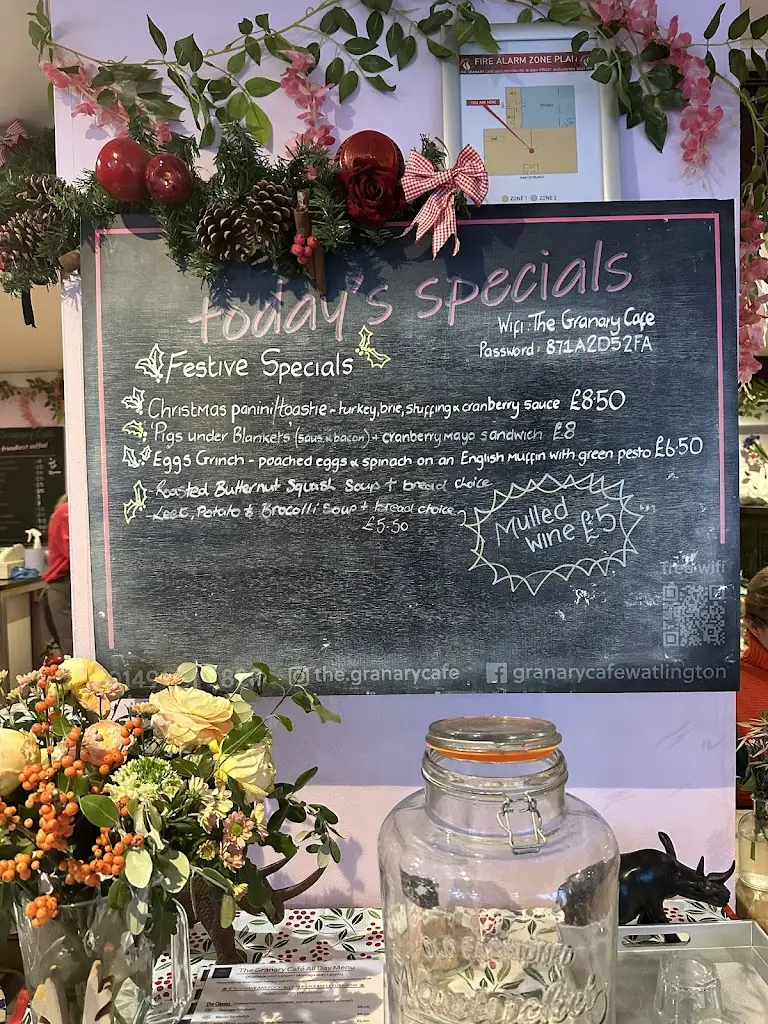 FIRE ALARM ZONE PLAN
YOU ARE HERE
KITCHEN
ZONE 1 ZONE 2
today's specials
Wifi: The Granary Cafe
Password: 871A2D52FA
Festive Specials
Christmas panini/toastie - turkey, brie, stuffing & cranberry sauce £8.50
Pigs under Blankets (saus & bacon) + cranberry mayo sandwich £8
Eggs Grinch - poached eggs & spinach on an English Muffin with green pesto £6.50
Roasted Butternut Squash Soup + bread choice
Leek, Potato & Brocolli Soup + bread choice
£5.50
Mulled
wine £5
free wifi
the.granarycafe granarycafewatlington
The Granary Café All Day Menu
The Classics
OLD FASHIONED